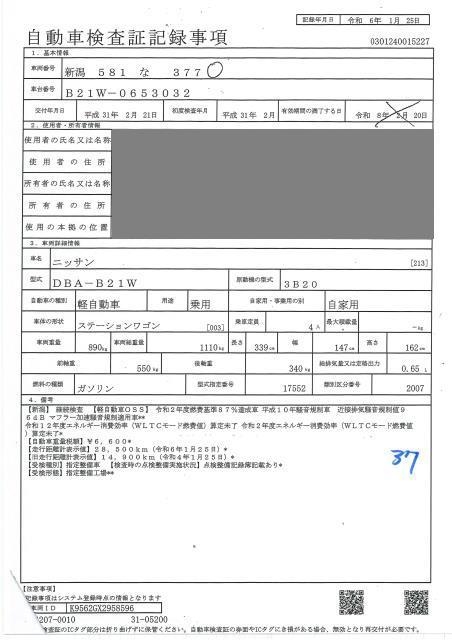 記録年月日 令和 6年 1月 25日
自動車検査証記録事項
0301240015227
1．基本情報
車両番号 新潟 581 な 377
車台番号 B21W-0653032
交付年月日 平成 31年 2月 21日 初度検査年月 平成 31年 2月 有効期間の満了する日 令和 8年 2月 20日
2．使用者・所有者情報
使用者の氏名又は名称
使用者の住所
所有者の氏名又は名称
所有者の住所
使用の本拠の位置
3．車両詳細情報
車名 ニッサン [213]
型式 DBA-B21W 原動機の型式 3B20
自動車の種別 軽自動車 用途 乗用 自家用・事業用の別 自家用
車体の形状 ステーションワゴン [003] 乗車定員 4人 最大積載量 -kg
車両重量 890kg 車両総重量 1110kg 長さ 339cm 幅 147cm 高さ 162cm
前軸重 550kg 後軸重 340kg 総排気量又は定格出力 0.65 L
燃料の種類 ガソリン 型式指定番号 17552 類別区分番号 2007
4．備考
【新潟】 継続検査 【軽自動車OSS】 令和2年度燃費基準87%達成車 平成10年騒音規制車 近接排気騒音規制値9
64B マフラー加速騒音規制適用車**
令和12年度エネルギー消費効率（WLTCモード燃費値）算定未了 令和2年度エネルギー消費効率（WLTCモード燃費値
）算定未了*
【自動車重量税額】¥6,600*
【走行距離計表示値】28,500km（令和6年1月25日）*
【旧走行距離計表示値】14,900km（令和4年1月25日）*
【受検種別】指定整備車 【検査時の点検整備実施状況】点検整備記録簿記載あり*
【受検形態】指定整備工場**
37
【注意事項】
記録事項はシステム登録時点の情報となります
車両ID K9562GX2958596
207-0010 31-05200
検査証のICタグ部分は折り曲げずに保管ください。自動車検査証の券面やICタグに き損がある場合、無効となり再交付が必要です。